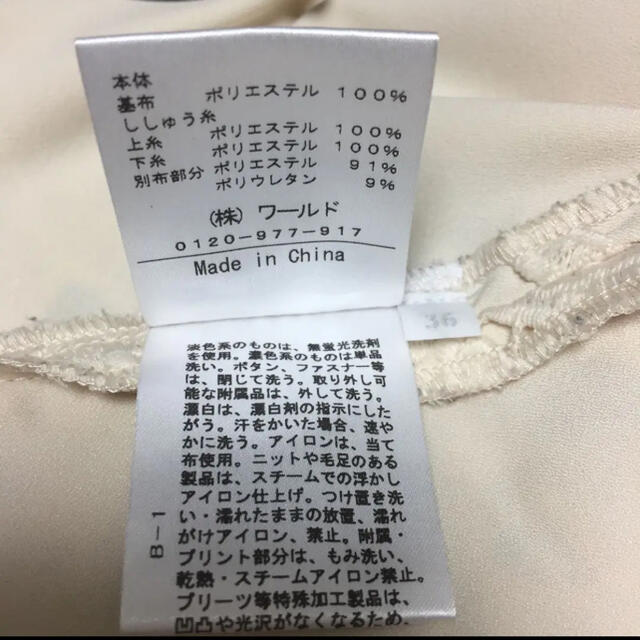 本体
基布 ポリエステル 100%
ししゅう糸
上糸 ポリエステル 100%
下糸 ポリエステル 100%
別布部分 ポリエステル 91%
ポリウレタン 9%
(株) ワールド
0120-977-917
Made in China
36
淡色系のものは、無蛍光洗剤
を使用。濃色系のものは単品
洗い。ボタン、ファスナー等
は、閉じて洗う。取り外し可
能な附属品は、外して洗う。
漂白は、漂白剤の指示にした
がう。汗をかいた場合、速や
かに洗う。アイロンは、当て
布使用。ニットや毛足のある
製品は、スチームでの浮かし
アイロン仕上げ。つけ置き洗
い・濡れたままの放置、濡れ
がけアイロン、禁止。附属・
プリント部分は、もみ洗い、
乾熱・スチームアイロン禁止。
プリーツ等特殊加工製品は、
凹凸や光沢がなくなるため、
B-1